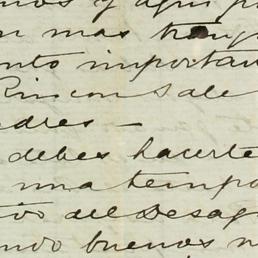 mos y aqui p
n mas tranq
ento importan
Rincon sale
dres —
debes hacerte
una tempo
tivo del Desag
ndo buenos n